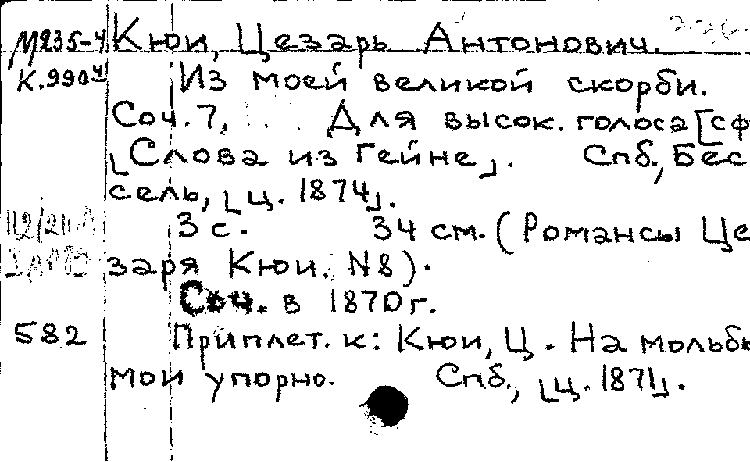 М235-4 Кюи, Цезарь Антонович.
К.990ч Из моей великой скорби.
Соч. 7, Для высок. голоса [сф
[Слова из Гейне]. Спб., Бес
сель, [ц. 1874].
3 с. 34 см. (Романсы Це
заря Кюи. N8).
Соч. в 1870 г.
582 Приплет. к: Кюи, Ц. На мольбы
мои упорно. Спб., [ц. 1871].